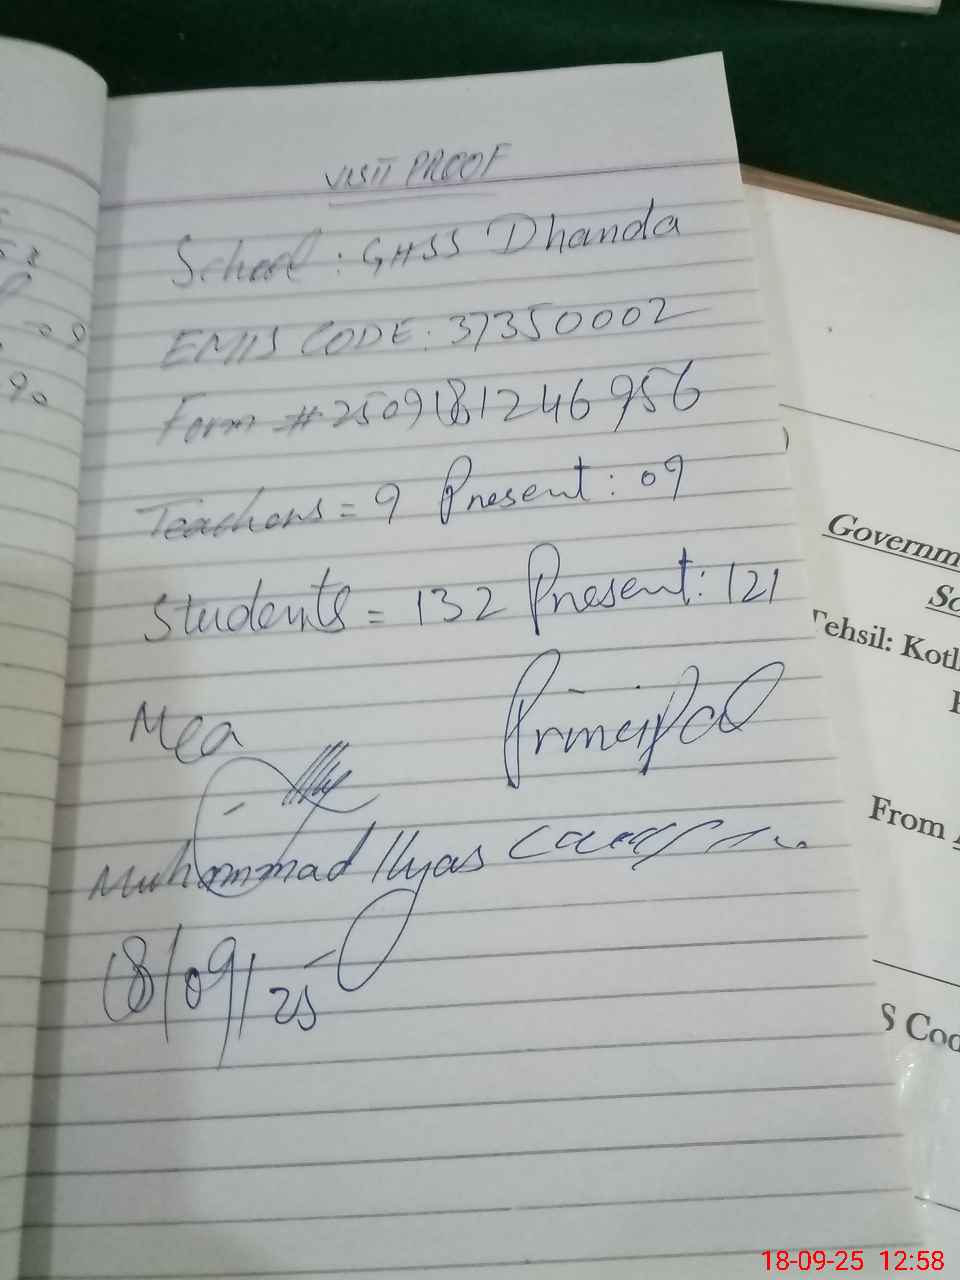 VISIT PROOF
School: GHSS Dhanda
EMIS CODE: 37350002
Form # 2509181246956
Teachers = 9 Present: 09
Students = 132 Present: 121
Mea
Principal
Muhammad Ilyas
18/09/25
5
09
90
Governm
Sc
Tehsil: Kotl
From
S Cod
18-09-25 12:58